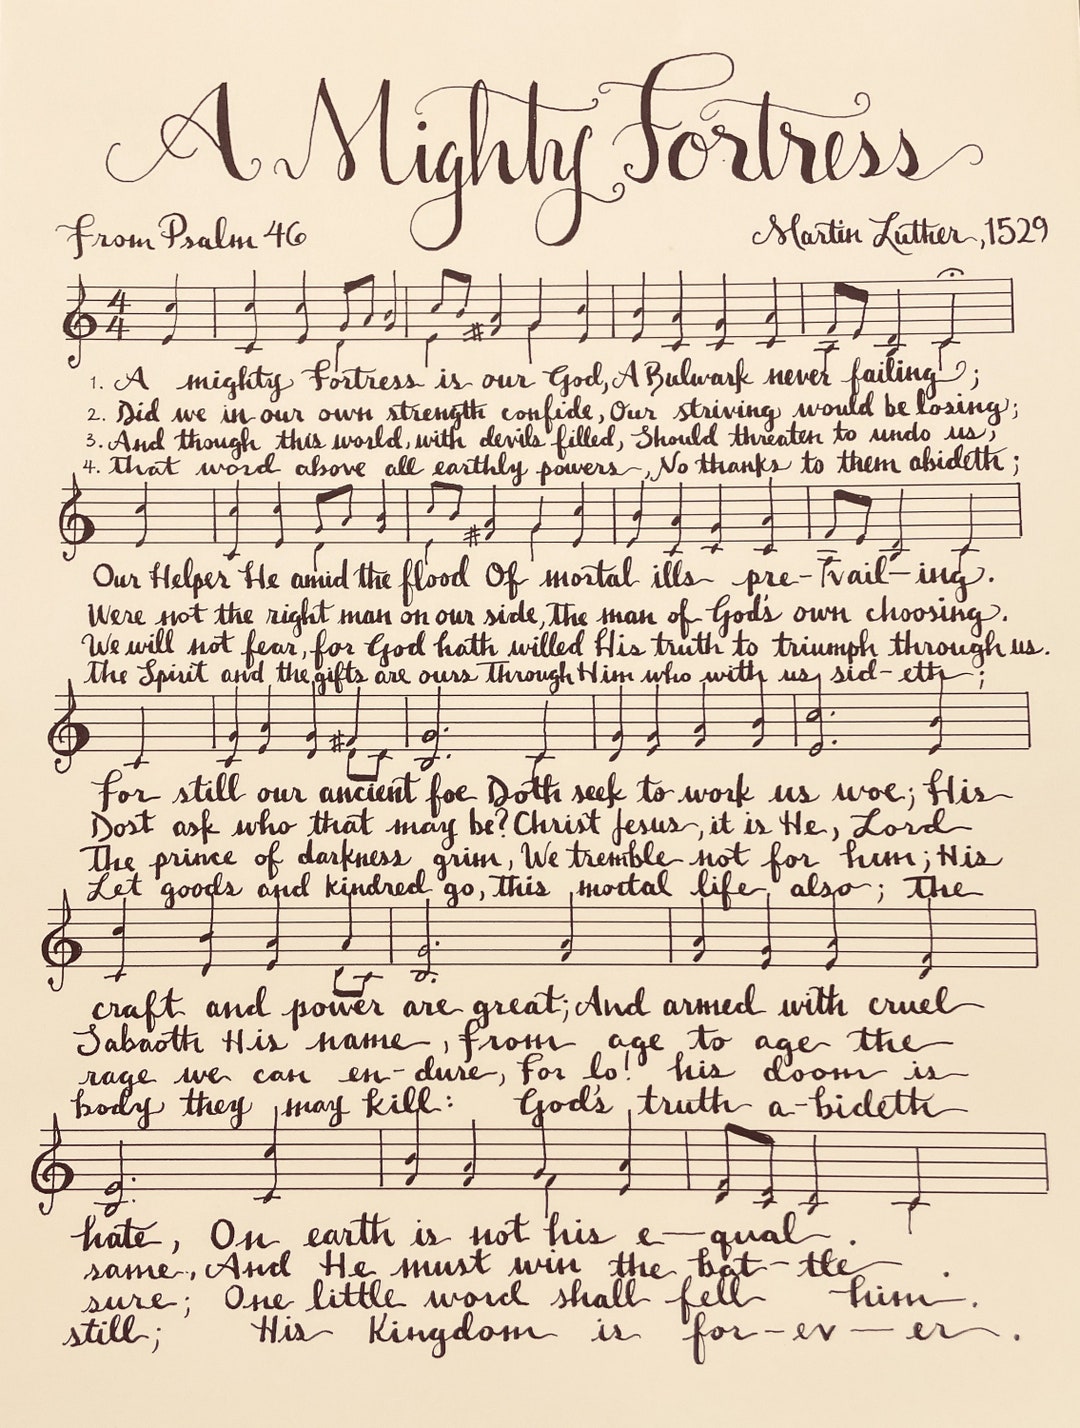 A Mighty Fortress
From Psalm 46
Martin Luther, 1529
4
4
1. A mighty Fortress is our God, A Bulwark never failing;
2. Did we in our own strength confide, Our striving would be losing;
3. And though this world, with devils filled, Should threaten to undo us,
4. That word above all earthly powers, No thanks to them abideth;
Our Helper He amid the flood Of mortal ills pre-vail-ing.
Were not the right man on our side, The man of God's own choosing.
We will not fear, for God hath willed His truth to triumph through us.
The Spirit and the gifts are ours Through Him who with us sid-eth;
For still our ancient foe Doth seek to work us woe; His
Dost ask who that may be? Christ Jesus, it is He, Lord
The prince of darkness grim, We tremble not for him; His
Let goods and kindred go, this mortal life also; The
craft and power are great; And armed with cruel
Sabaoth His name, From age to age the
rage we can en-dure, For lo! his doom is
body they may kill: God's truth a-bideth
hate, On earth is not his e-qual.
same, And He must win the bat-tle.
sure; One little word shall fell him.
still; His Kingdom is for-ev-er.